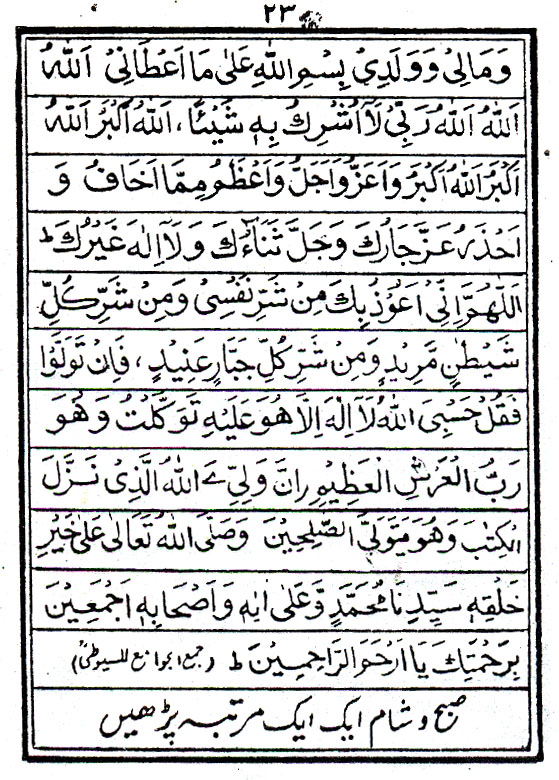 ۲۳
وَمَالِیْ وَوَلَدِیْ بِسْمِ اللّٰهِ عَلٰی مَا اَعْطَانِیْ اَللّٰهُ
اَللّٰهُ اَللّٰهُ رَبِّیْ لَآ اُشْرِكُ بِهٖ شَیْئًا، اَللّٰهُ اَكْبَرُ اَللّٰهُ
اَكْبَرُ اَللّٰهُ اَكْبَرُ وَاَعَزُّ وَاَجَلُّ وَاَعْظَمُ مِمَّا اَخَافُ وَ
اَحْذَرُ عَزَّ جَارُكَ وَجَلَّ ثَنَآءُكَ وَلَآ اِلٰهَ غَیْرُكَ ط
اَللّٰهُمَّ اِنِّیْ اَعُوْذُ بِكَ مِنْ شَرِّ نَفْسِیْ وَمِنْ شَرِّ كُلِّ
شَیْطٰنٍ مَّرِیْدٍ وَمِنْ شَرِّ كُلِّ جَبَّارٍ عَنِیْدٍ، فَاِنْ تَوَلَّوْا
فَقُلْ حَسْبِیَ اللّٰهُ لَآ اِلٰهَ اِلَّا هُوَ عَلَیْهِ تَوَكَّلْتُ وَهُوَ
رَبُّ الْعَرْشِ الْعَظِیْمِ اِنَّ وَلِیِّ ےَ اللّٰهُ الَّذِیْ نَزَّلَ
الْكِتٰبَ وَهُوَ یَتَوَلَّی الصّٰلِحِیْنَ وَصَلَّی اللّٰهُ تَعَالٰی عَلٰی خَیْرِ
خَلْقِهٖ سَیِّدِنَا مُحَمَّدٍ وَّعَلٰی اٰلِهٖ وَاَصْحَابِهٖ اَجْمَعِیْنَ
بِرَحْمَتِكَ یَا اَرْحَمَ الرَّاحِمِیْنَ ط (جمع الجوامع للسیوطیؒ)
صبح و شام ایک ایک مرتبہ پڑھیں